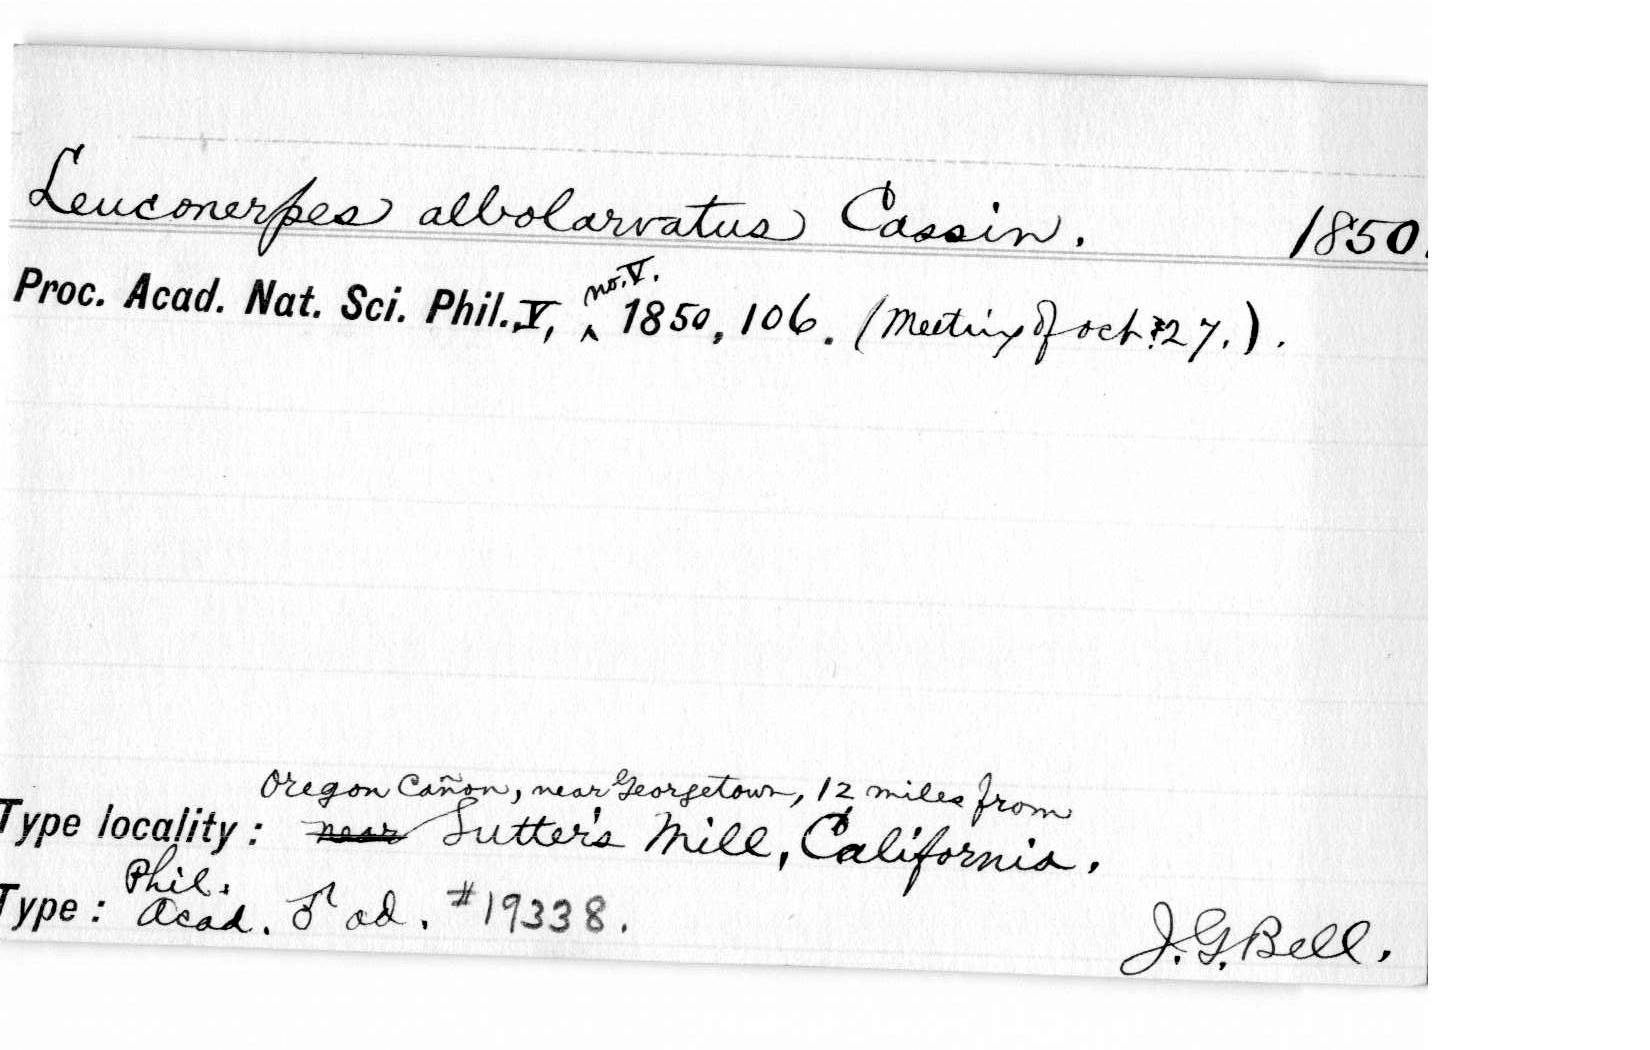 Leuconerpes albolarvatus Cassin. 1850.
no. V.
Proc. Acad. Nat. Sci. Phil. V, ‸ 1850, 106. (Meeting of Oct. 27.).
Oregon Cañon, near Georgetown, 12 miles from
Type locality: near Sutter's Mill, California.
Phil.
Type: Acad. ♂ ad. #19338.
J. G. Bell.